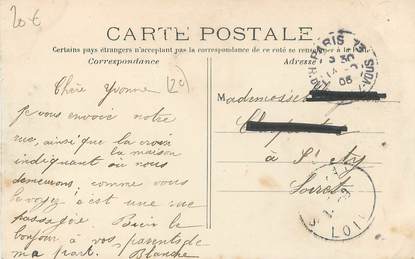 20 €
CARTE POSTALE
Certains pays étrangers n'acceptant pas la correspondance de ce côté se renseigner à la
Correspondance
Adresse
PARIS 73
30
05
Chère Yvonne
je vous envoie notre
rue, ainsi que la croix
la maison
indiquant où nous
demeurons comme vous
le voyez c'est une rue
passagée. Bien le
bonjour à vos parents de
ma part. Blanche
Mademoiselle
à St Ay
Loiret